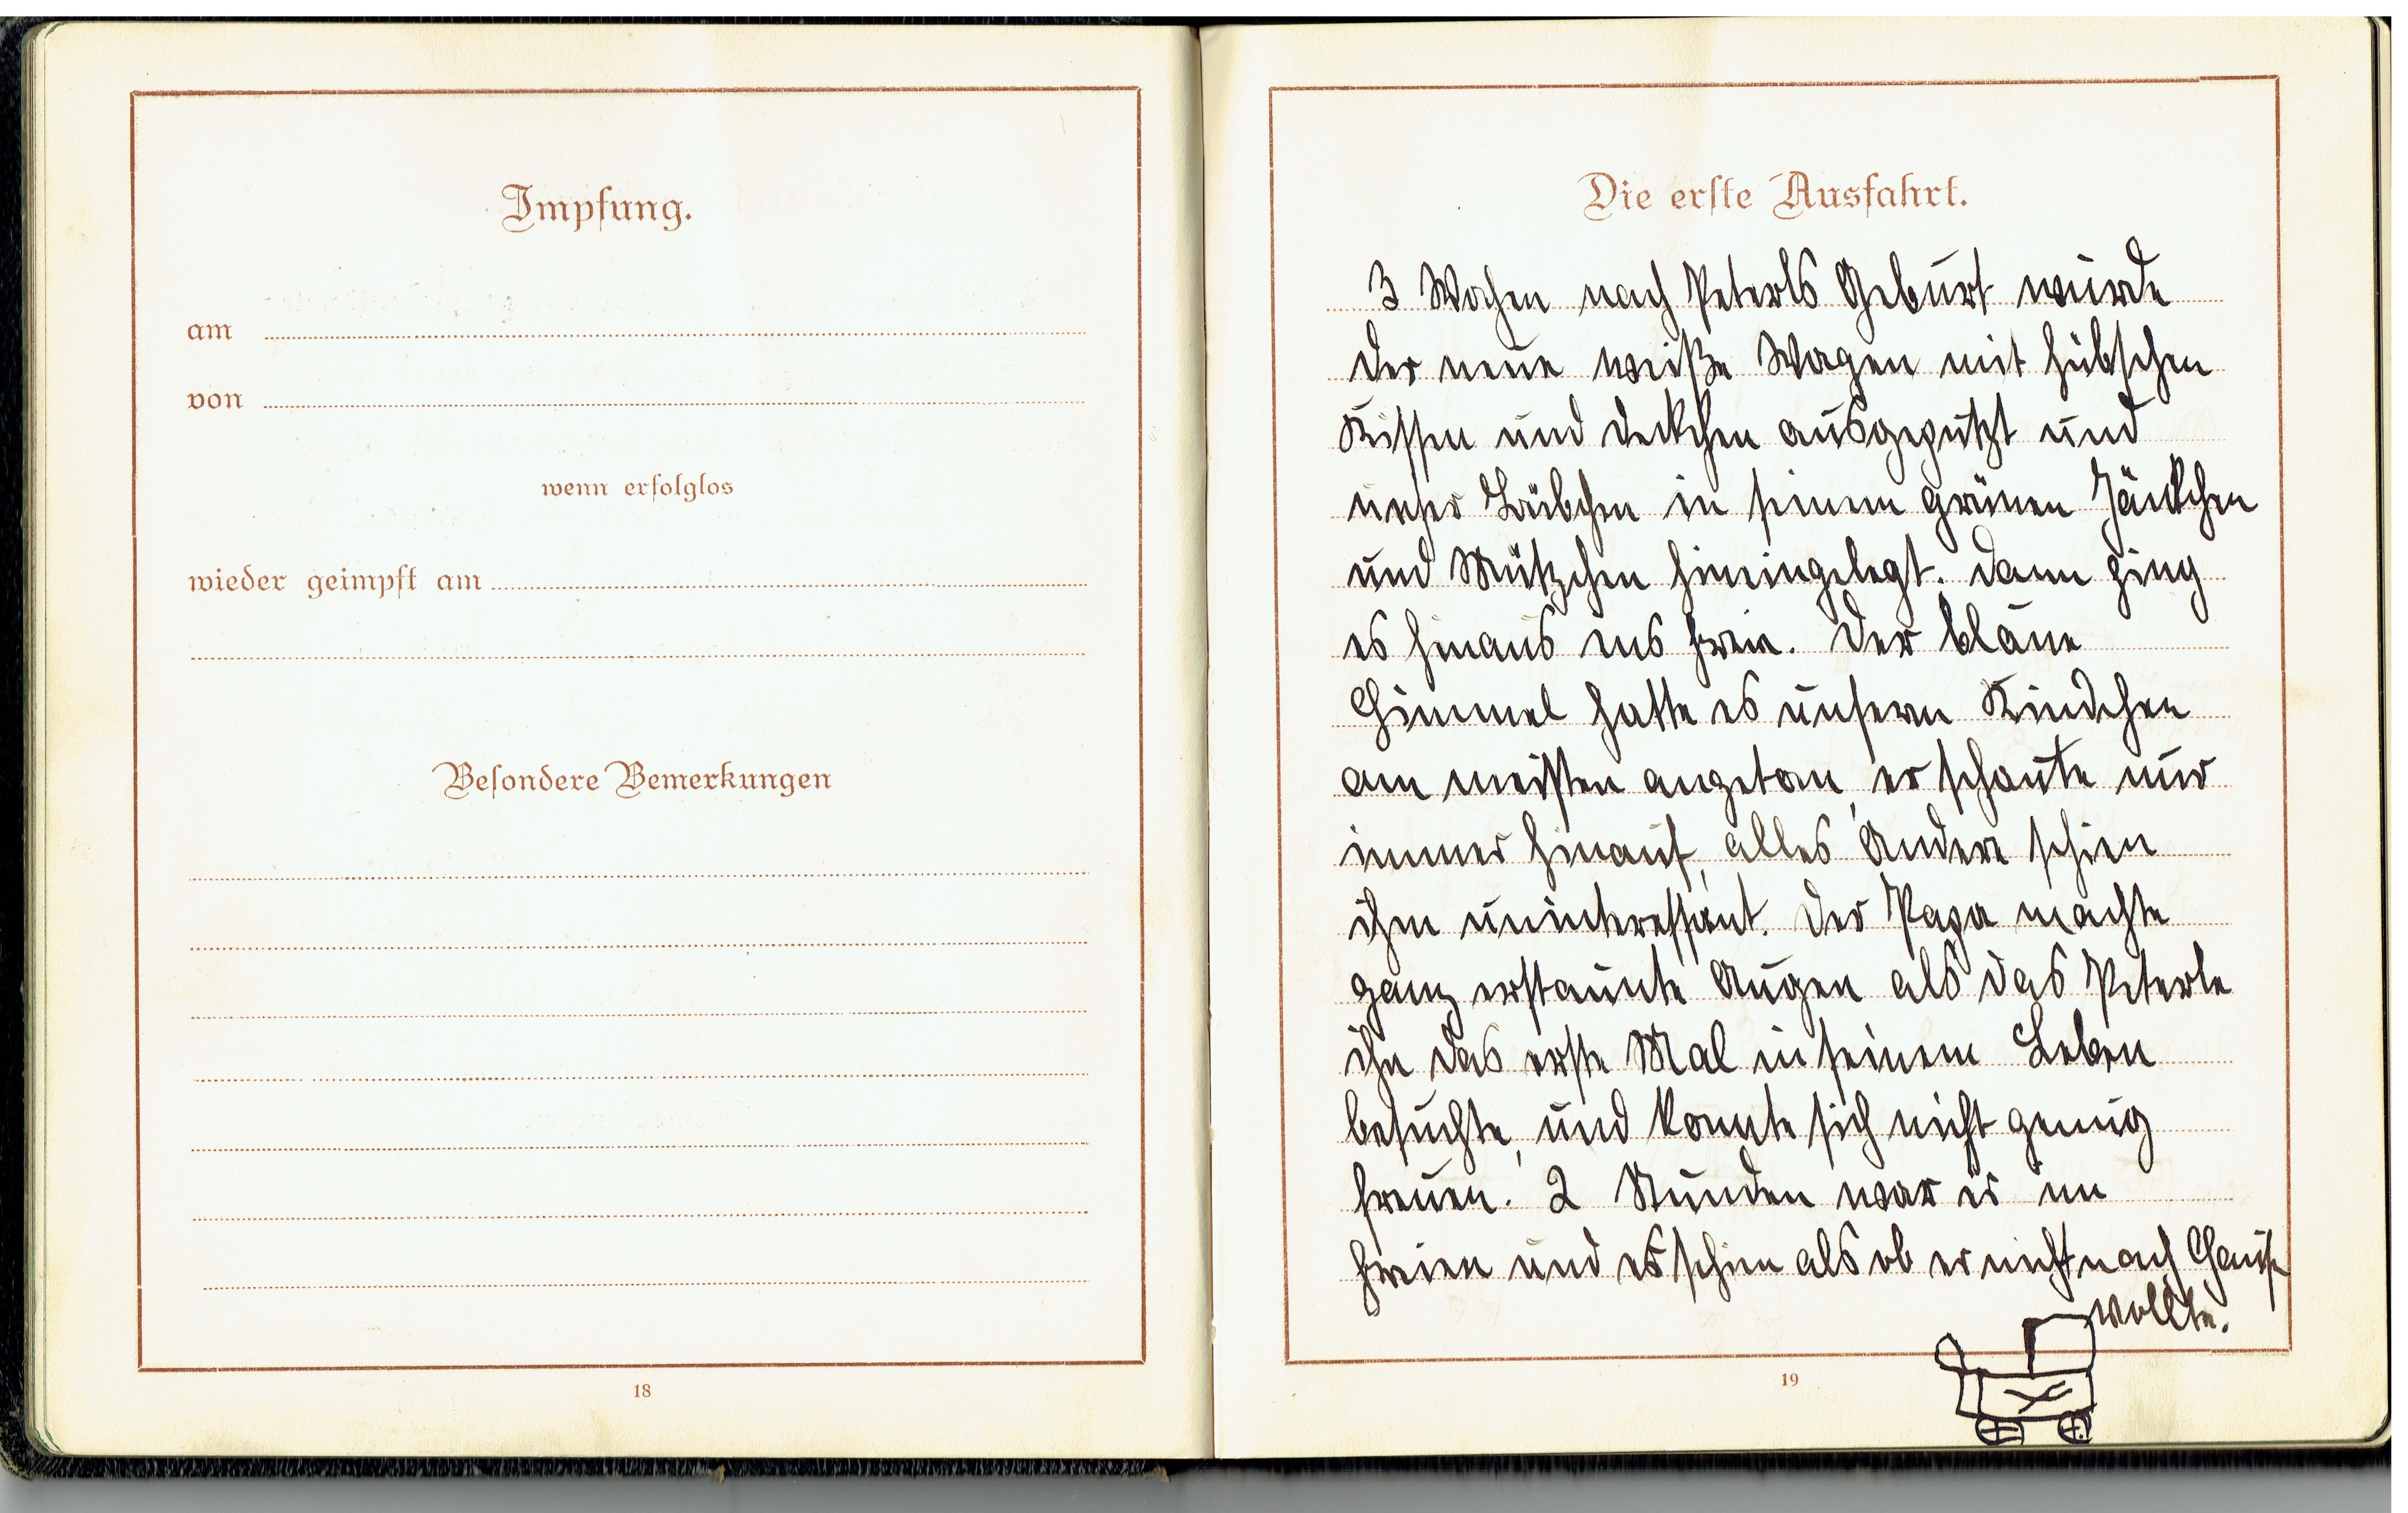 Impfung.
am
von
wenn erfolglos
wieder geimpft am
Besondere Bemerkungen
18
Die erste Ausfahrt.
3 Wochen nach Peterls Geburt wurde
der neue weiße Wagen mit hübschen
Kissen und Deckchen ausgeputzt und
unser Bübchen in seinem grünen Jäckchen
und Mützchen hineingelegt. Dann ging
es hinaus ins Freie. Der blaue
Himmel hatte es unserm Kindchen
am meisten angetan, er schaute nur
immer hinauf, alles Andere schien
ihm uninteressant. Der Papa machte
ganz erstaunte Augen als das Peterle
ihn das erste Mal in seinem Leben
besuchte, und konnte sich nicht genug
freuen. 2 Stunden war er im
Freien und es schien als ob er nicht nach Hause
wollte.
19